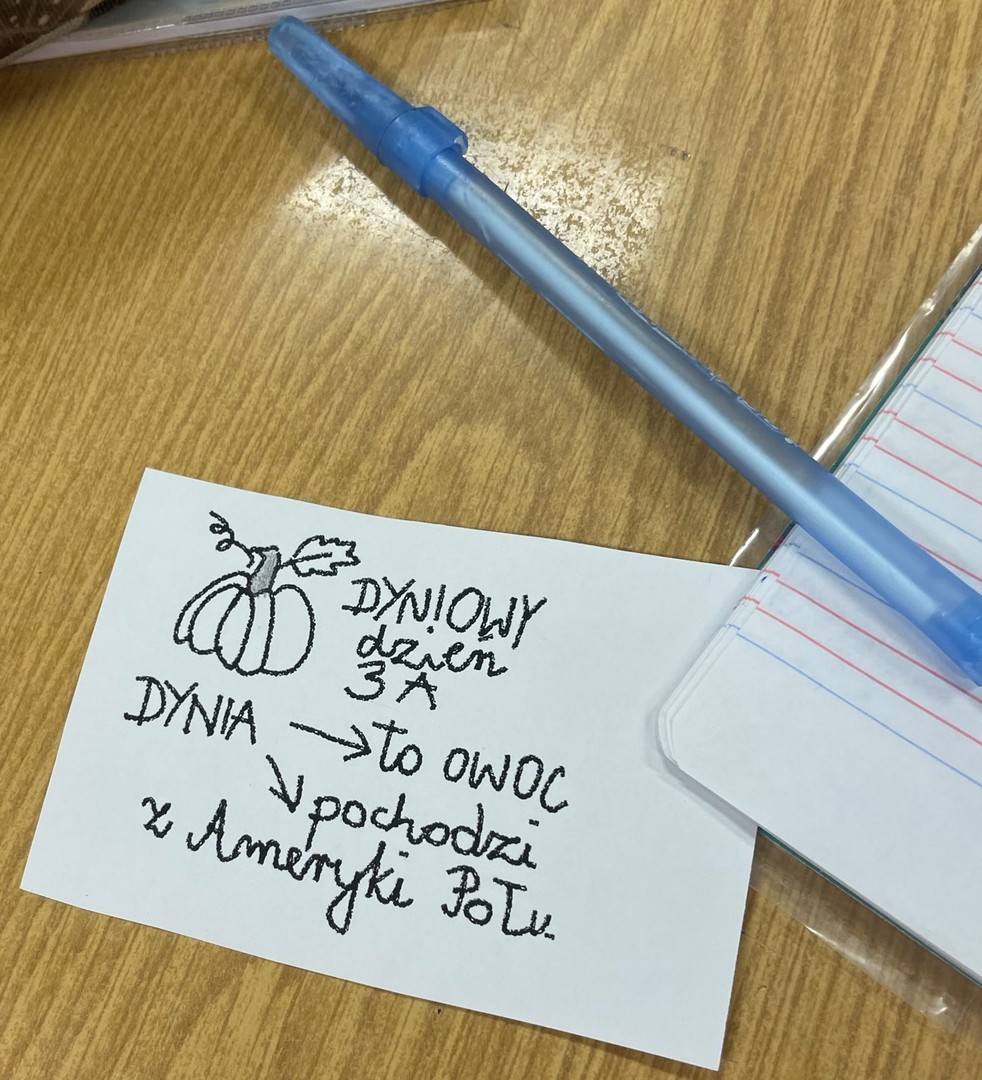 DYNIOWY
dzień
3 A
DYNIA → to owoc
↘ pochodzi
z Ameryki Połu.